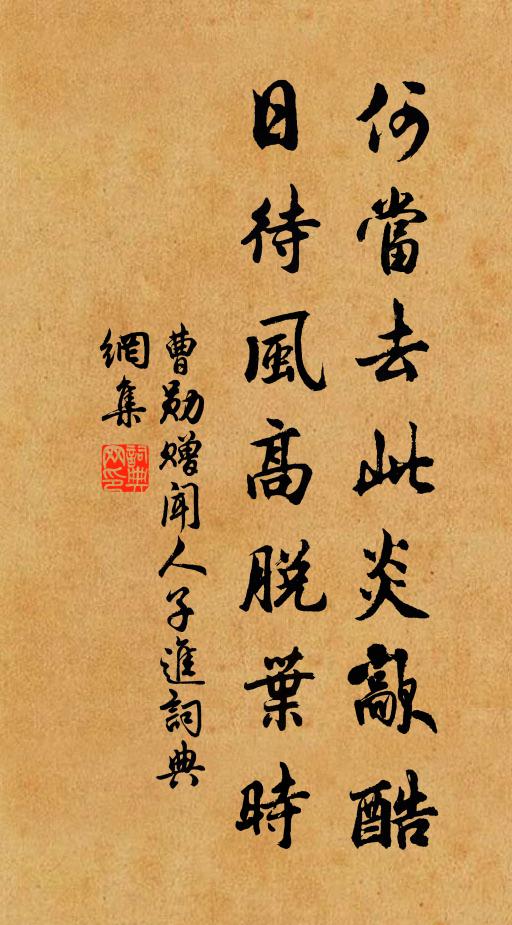 何當去此炎歊酷
日待風高脫葉時
曹勛贈聞人子進詞典
網集
詞典
网印